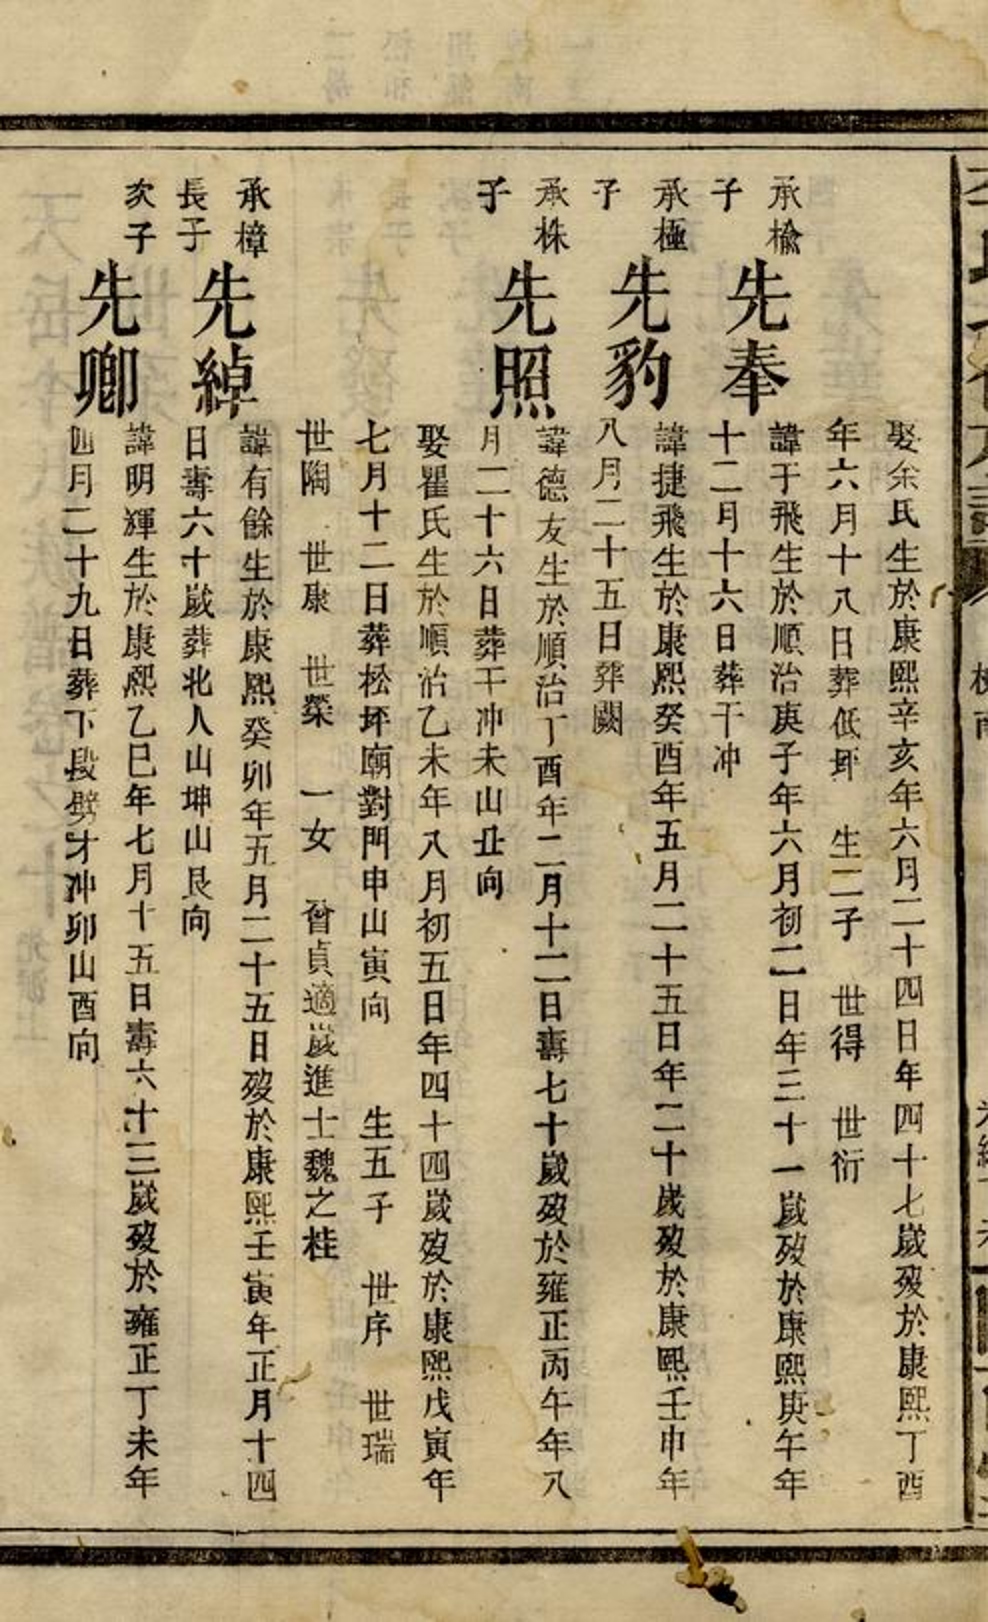 娶余氏生於康熙辛亥年六月二十四日年四十七歲歿於康熙丁酉
年六月十八日葬低坪 生二子 世得 世衍
承榆
子
先奉
諱于飛生於順治庚子年六月初二日年三十一歲歿於康熙庚午年
十二月十六日葬干冲
承極
子
先豹
諱捷飛生於康熙癸酉年五月二十五日年二十歲歿於康熙壬申年
八月二十五日葬闕
承株
子
先照
諱德友生於順治丁酉年二月十二日壽七十歲歿於雍正丙午年八
月二十六日葬干冲未山丑向
娶瞿氏生於順治乙未年八月初五日年四十四歲歿於康熙戊寅年
七月十二日葬松坪廟對門申山寅向 生五子 世序 世瑞
世陶 世康 世榮 一女 曾貞適歲進士魏之桂
承樟
長子
先綽
諱有餘生於康熙癸卯年五月二十五日歿於康熙壬寅年正月十四
日壽六十歲葬北人山坤山艮向
次子
先卿
諱明輝生於康熙乙巳年七月十五日壽六十三歲歿於雍正丁未年
四月二十九日葬下段劈才冲卯山酉向